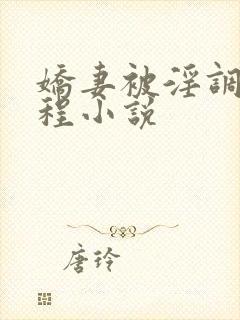 嬌妻被淫調
程小説
唐玲